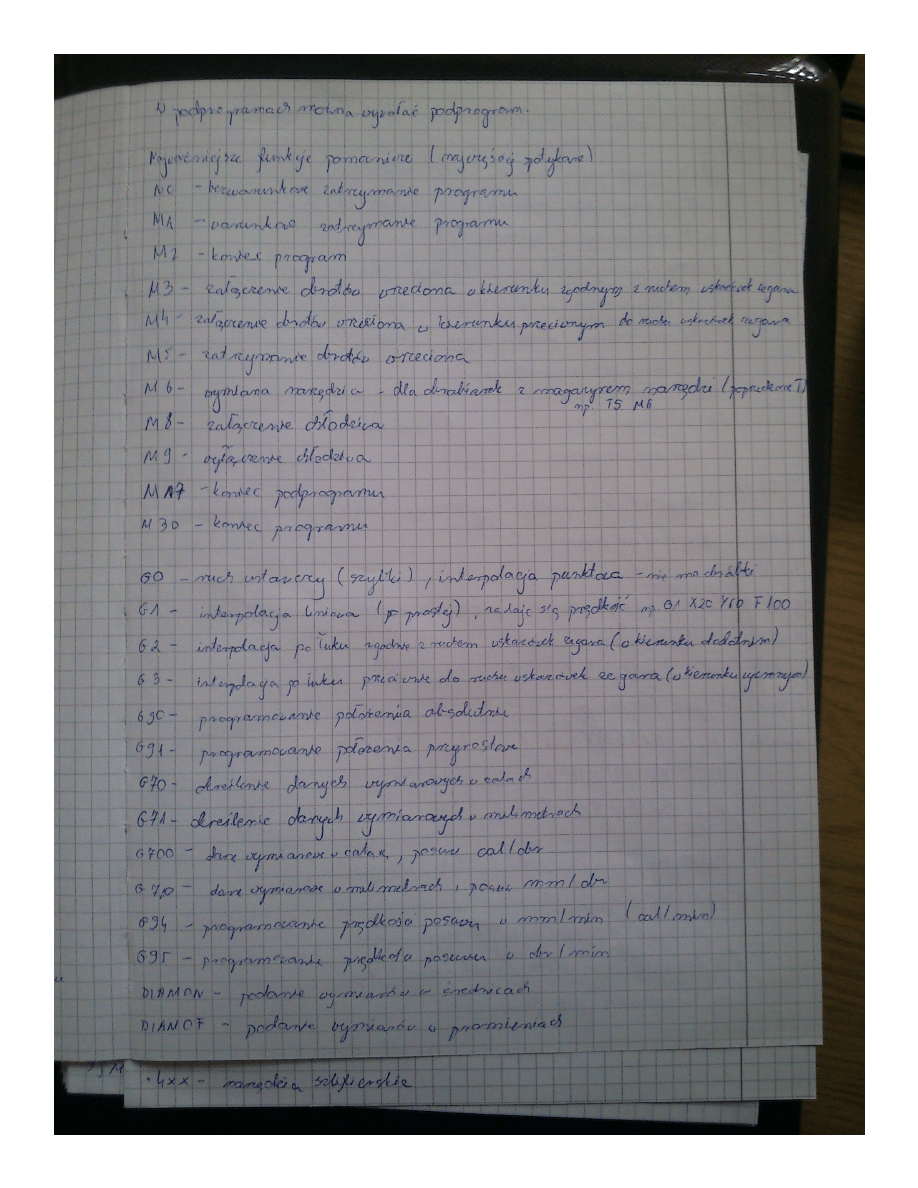 W podprogramach można wywołać podprogram.
Najważniejsze funkcje pomocnicze (najczęściej spotykane)
M0 - bezwarunkowe zatrzymanie programu
M1 - warunkowe zatrzymanie programu
M2 - koniec program
M3 - załączenie obrotów wrzeciona w kierunku zgodnym z ruchem wskazówek zegara
M4 - załączenie obrotów wrzeciona w kierunku przeciwnym do ruchu wskazówek zegara
M5 - zatrzymanie obrotów wrzeciona
M6 - wymiana narzędzia - dla obrabiarek z magazynem narzędzi (poprzedzone T)
np. T5 M6
M8 - załączenie chłodziwa
M9 - wyłączenie chłodziwa
M17 - koniec podprogramu
M30 - koniec programu
G0 - ruch ustawczy (szybki), interpolacja punktowa - nie ma obróbki
G1 - interpolacja liniowa (po prostej), zadaje się prędkość np. G1 X20 Y10 F100
G2 - interpolacja po łuku zgodnie z ruchem wskazówek zegara (w kierunku dodatnim)
G3 - interpolacja po łuku przeciwnie do ruchu wskazówek zegara (w kierunku ujemnym)
G90 - programowanie położenia absolutne
G91 - programowanie położenia przyrostowe
G70 - określenie danych wymiarowych w calach
G71 - określenie danych wymiarowych w milimetrach
G700 - dane wymiarowe w calach, posuw cal/obr
G710 - dane wymiarowe w milimetrach, posuw mm/obr
G94 - programowanie prędkości posuwu w mm/min (cal/min)
G95 - programowanie prędkości posuwu w obr/min
DIAMON - podanie wymiarów w średnicach
DIAMOF - podanie wymiarów w promieniach
4xx - narzędzia szlifierskie